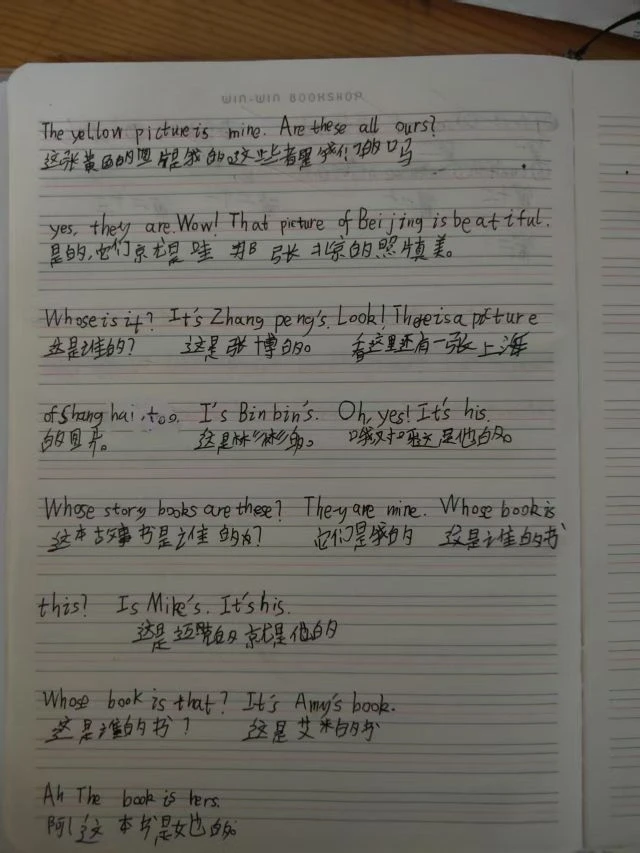 WIN-WIN BOOKSHOP
The yellow picture is mine. Are these all ours?
这张黄色的图片是我的 这些都是我们的吗
yes, they are. Wow! That picture of Beijing is beatiful.
是的,它们就是 哇 那张 北京的照真美。
Whose is it? It's Zhang peng's. Look! There is a picture
这是谁的? 这是张博的。 看这里还有一张上海
of Shang hai, too. I's Bin bin's. Oh, yes! It's his.
的图片。 这是彬彬的。 哦对啊这是他的。
Whose story books are these? They are mine. Whose book is
这本故事书是谁的? 它们是我的 这是谁的书
this? Is Mike's. It's his.
这是迈克的 就是他的
Whose book is that? It's Amy's book.
这是谁的书? 这是艾米的书
Ah The book is hers.
阿 这本书是她的。